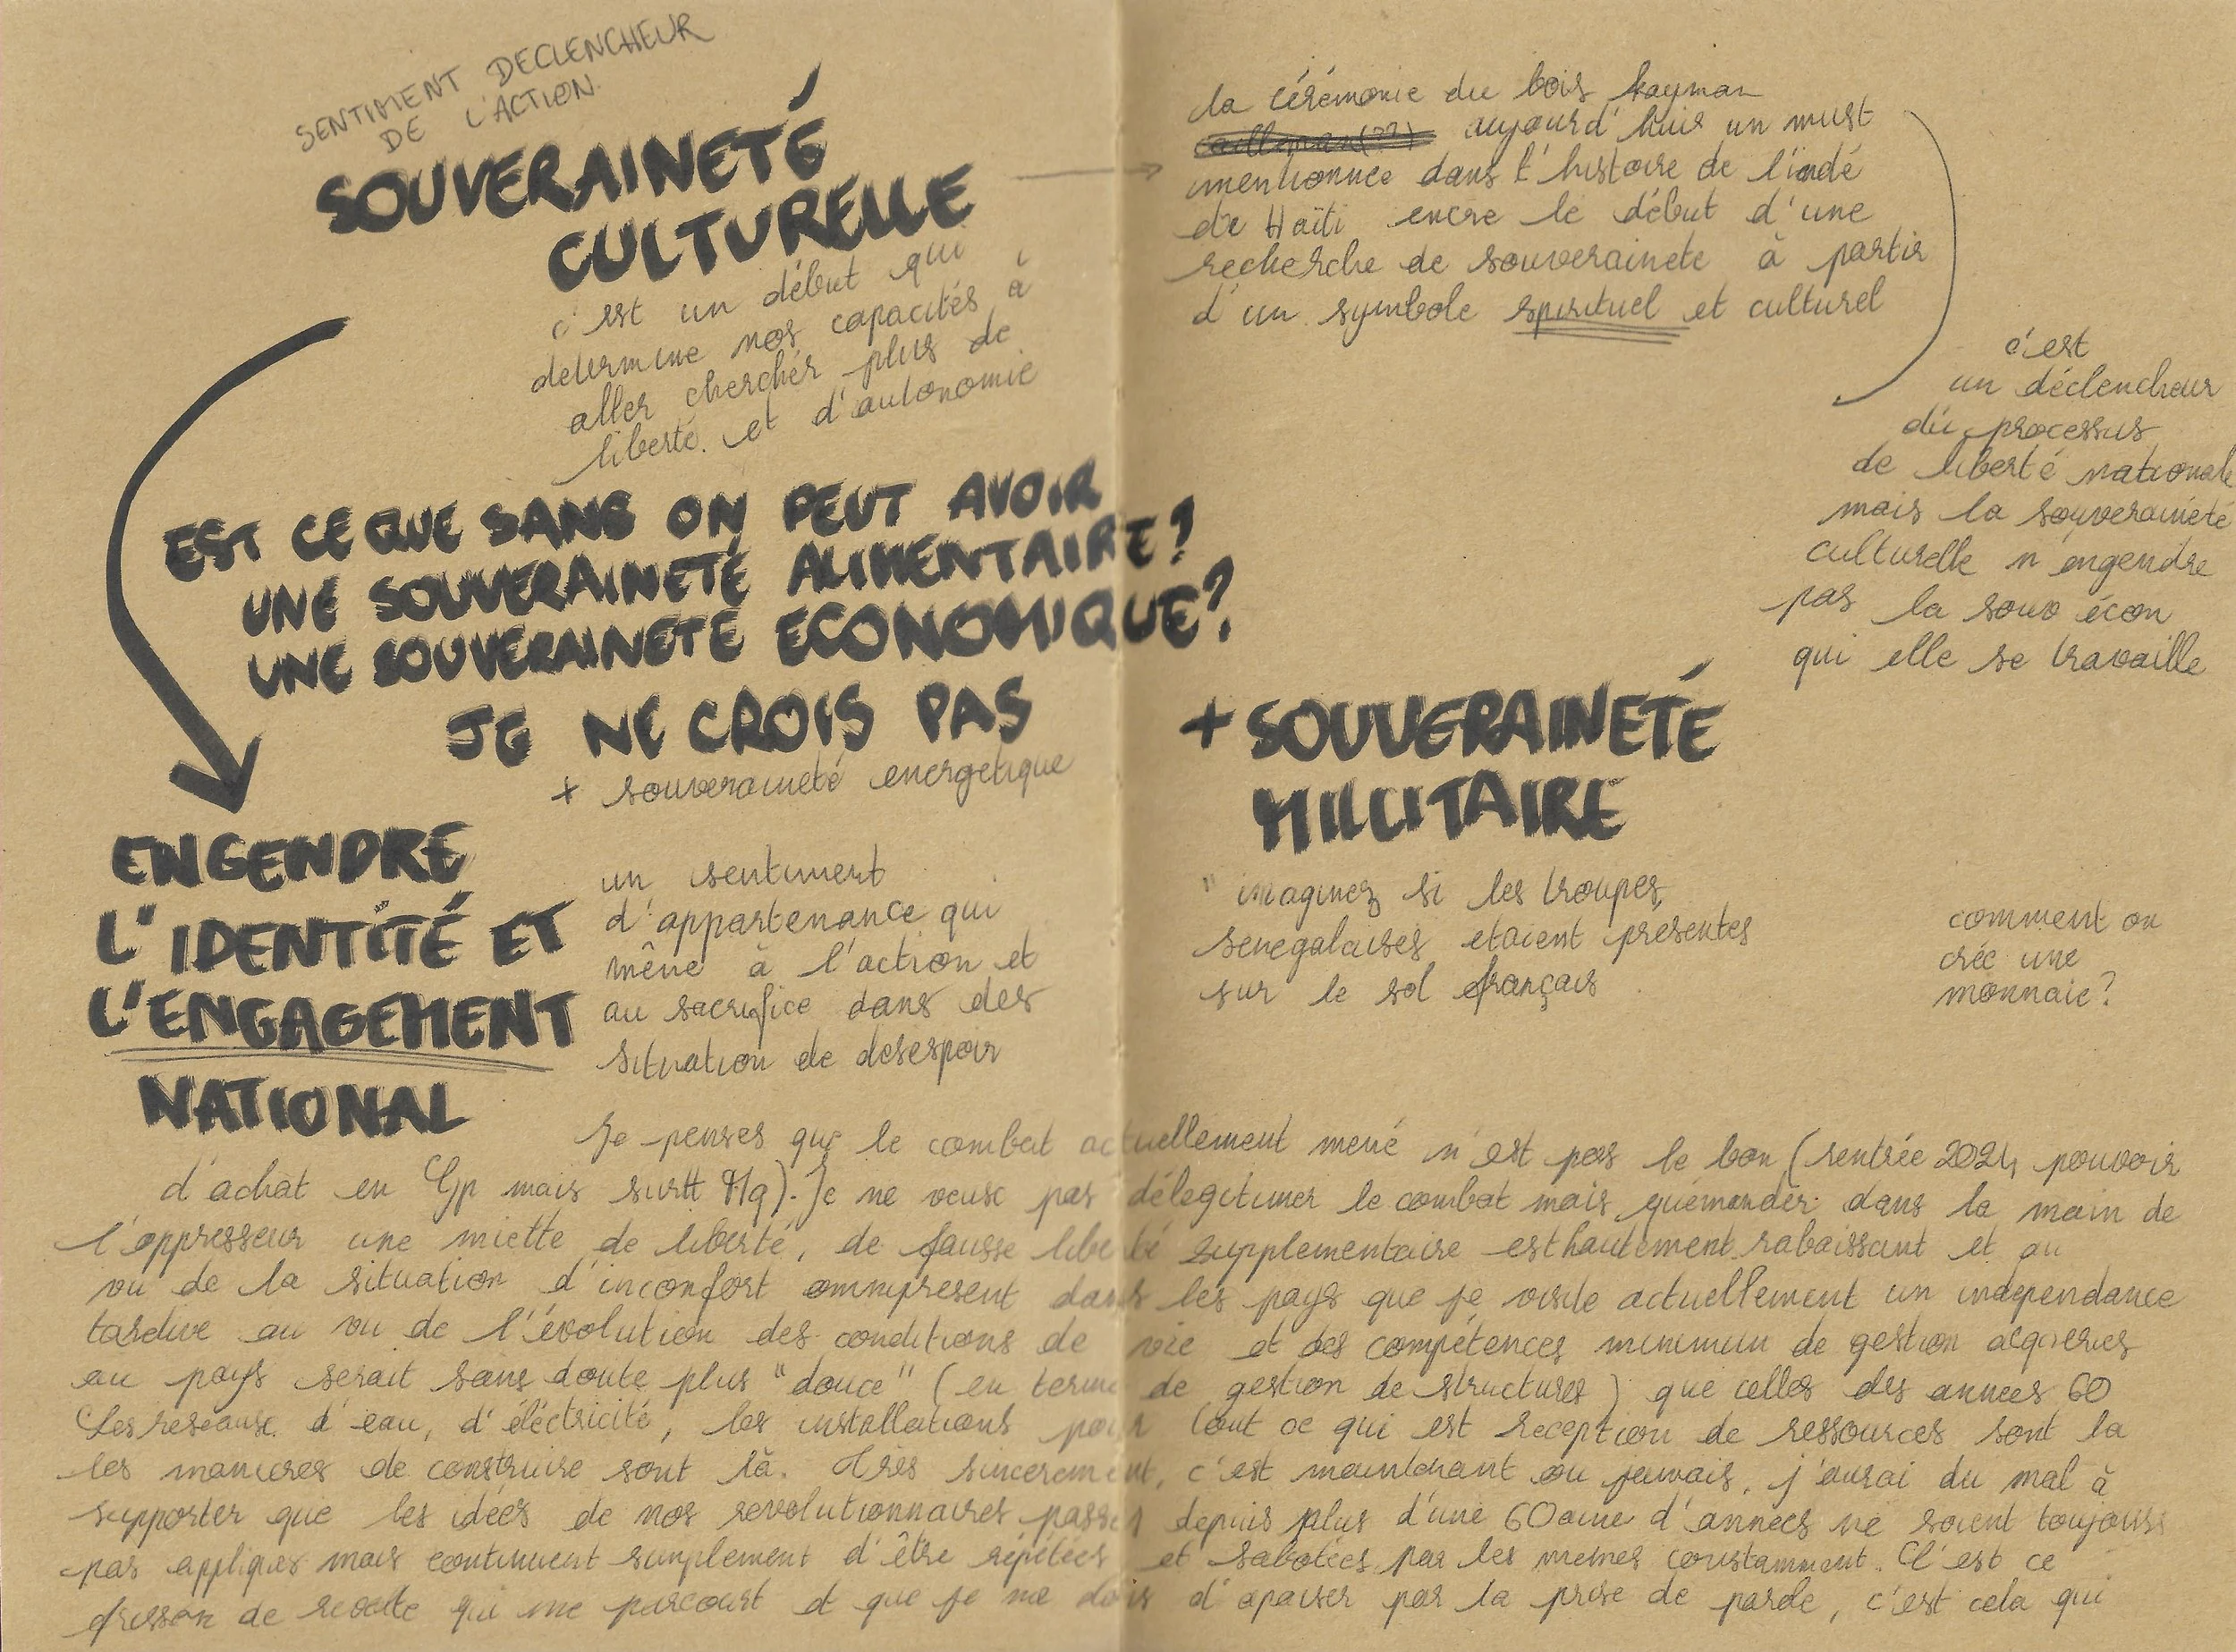 SENTIMENT DECLENCHEUR
DE L'ACTION.
SOUVERAINETÉ
CULTURELLE
c'est un début qui
determine nos capacités à
aller chercher plus de
liberté. et d'autonomie
EST CE QUE SANS ON PEUT AVOIR
UNE SOUVERAINETÉ ALIMENTAIRE?
UNE SOUVERAINETÉ ECONOMIQUE?
JE NE CROIS PAS
+ souveraineté energetique
ENGENDRE
L'IDENTITÉ ET
L'ENGAGEMENT
NATIONAL
un sentiment
d'appartenance qui
mène à l'action et
au sacrifice dans des
situation de desespoir
la cérémonie du bois kayman
aujourd'huis un must
mentionnee dans l'histoire de l'indé
de Haïti encre le début d'une
recherche de souverainete à partir
d'un symbole spirituel et culturel
c'est
un déclencheur
du processus
de liberté nationale
mais la souveraineté
culturelle n'engendre
pas la souv écon
qui elle se travaille
+ SOUVERAINETÉ
MILLITAIRE
" imaginez si les troupes
senegalaises etaient presentes
sur le sol français
comment on
crée une
monnaie?
Je penses que le combat actuellement mené n'est pas le bon (rentrée 2024 pouvoir
d'achat en Gp mais surtt Mq). Je ne veux pas délegitimer le combat mais quémander dans la main de
l'oppresseur une miette de liberté, de fausse liberté supplementaire est hautement rabaissant et au
vu de la situation d'inconfort omnipresent dans les pays que je visite actuellement un independance
tardive au vu de l'évolution des conditions de vie et des compétences minimum de gestion acquieries
au pays serait sans doute plus "douce" (en terme de gestion de structures) que celles des annees 60
Les reseaux d'eau, d'éléctricité, les installations pour tout ce qui est reception de ressources sont la
les manieres de construire sont là. Très sincerement, c'est maintenant ou jamais, j'aurai du mal à
supporter que les idées de nos revolutionnaires passés depuis plus d'une 60aine d'annees ne soient toujours
pas appliqués mais continuent simplement d'être répétées et sabotées par les memes constamment. C'est ce
frisson de revolte qui me parcourt et que je me dois d'apaiser par la prise de parole, c'est cela qui